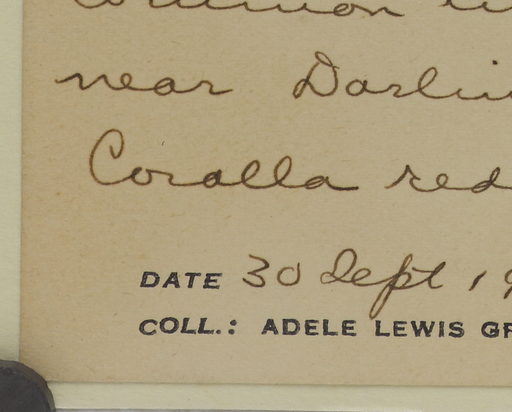 near
Coralla red
DATE 30 Sept
COLL.: ADELE LEWIS